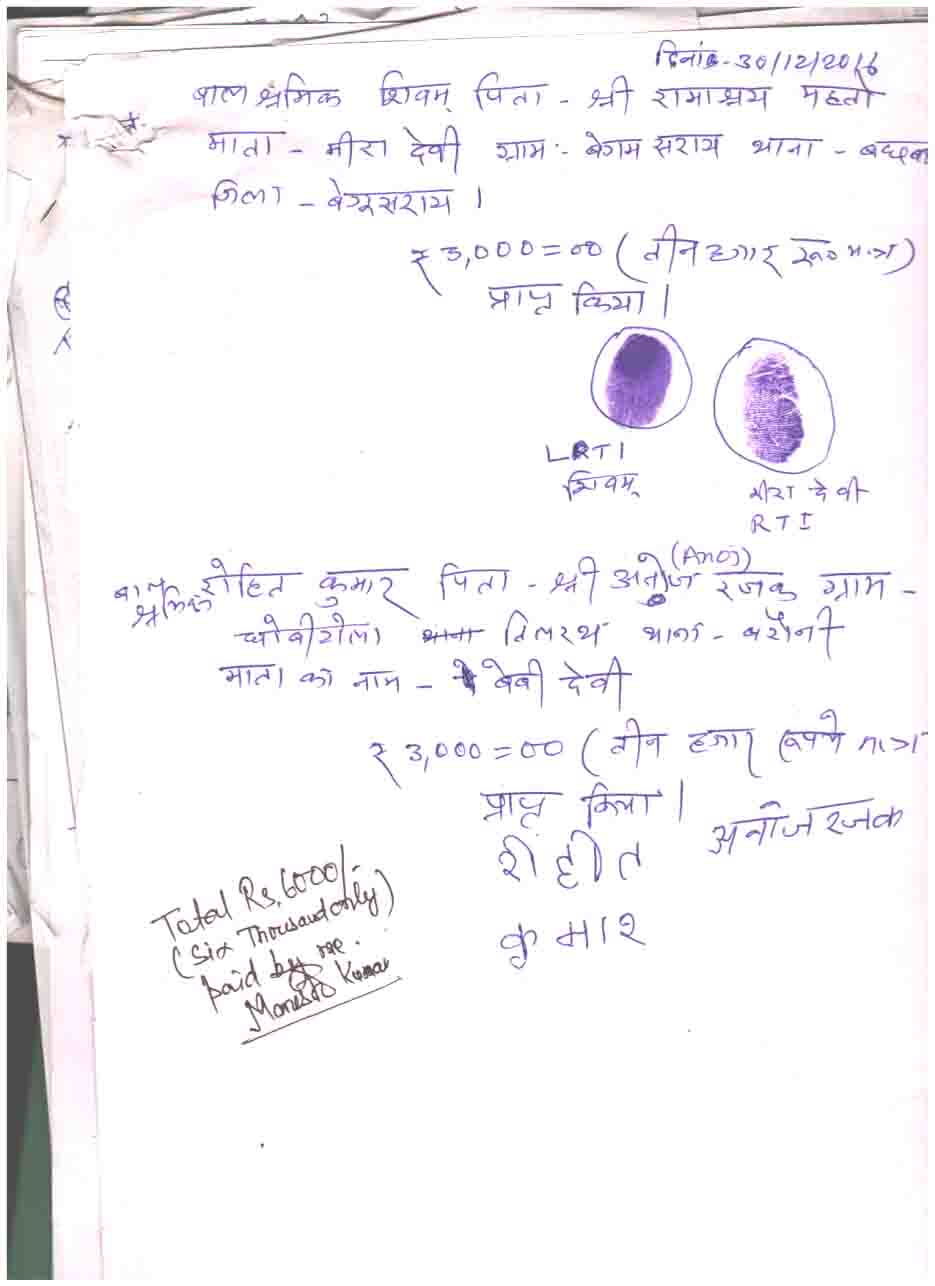 दिनांक-30/12/2016
बाल श्रमिक शिवम् पिता - श्री रामाश्रय महतो
माता - मीरा देवी ग्राम :- बेगमसराय थाना -
जिला - बेगूसराय ।
₹ 3,000=00 ( तीन हजार रू० मात्र )
प्राप्त किया ।
LRTI
शिवम्
मीरा देवी
RTI
(Anoj)
बाल श्रमिक रोहित कुमार पिता - श्री अनोज रजक ग्राम -
धोबीटोला थाना तिलरथ थाना - बरौनी
माता का नाम - बेबी देवी
₹ 3,000=00 ( तीन हजार रूपये मात्र
प्राप्त किया ।
अनोज रजक
रोहीत
कुमार
Total Rs. 6000/-
(Six Thousand only)
paid by me.
Kumar